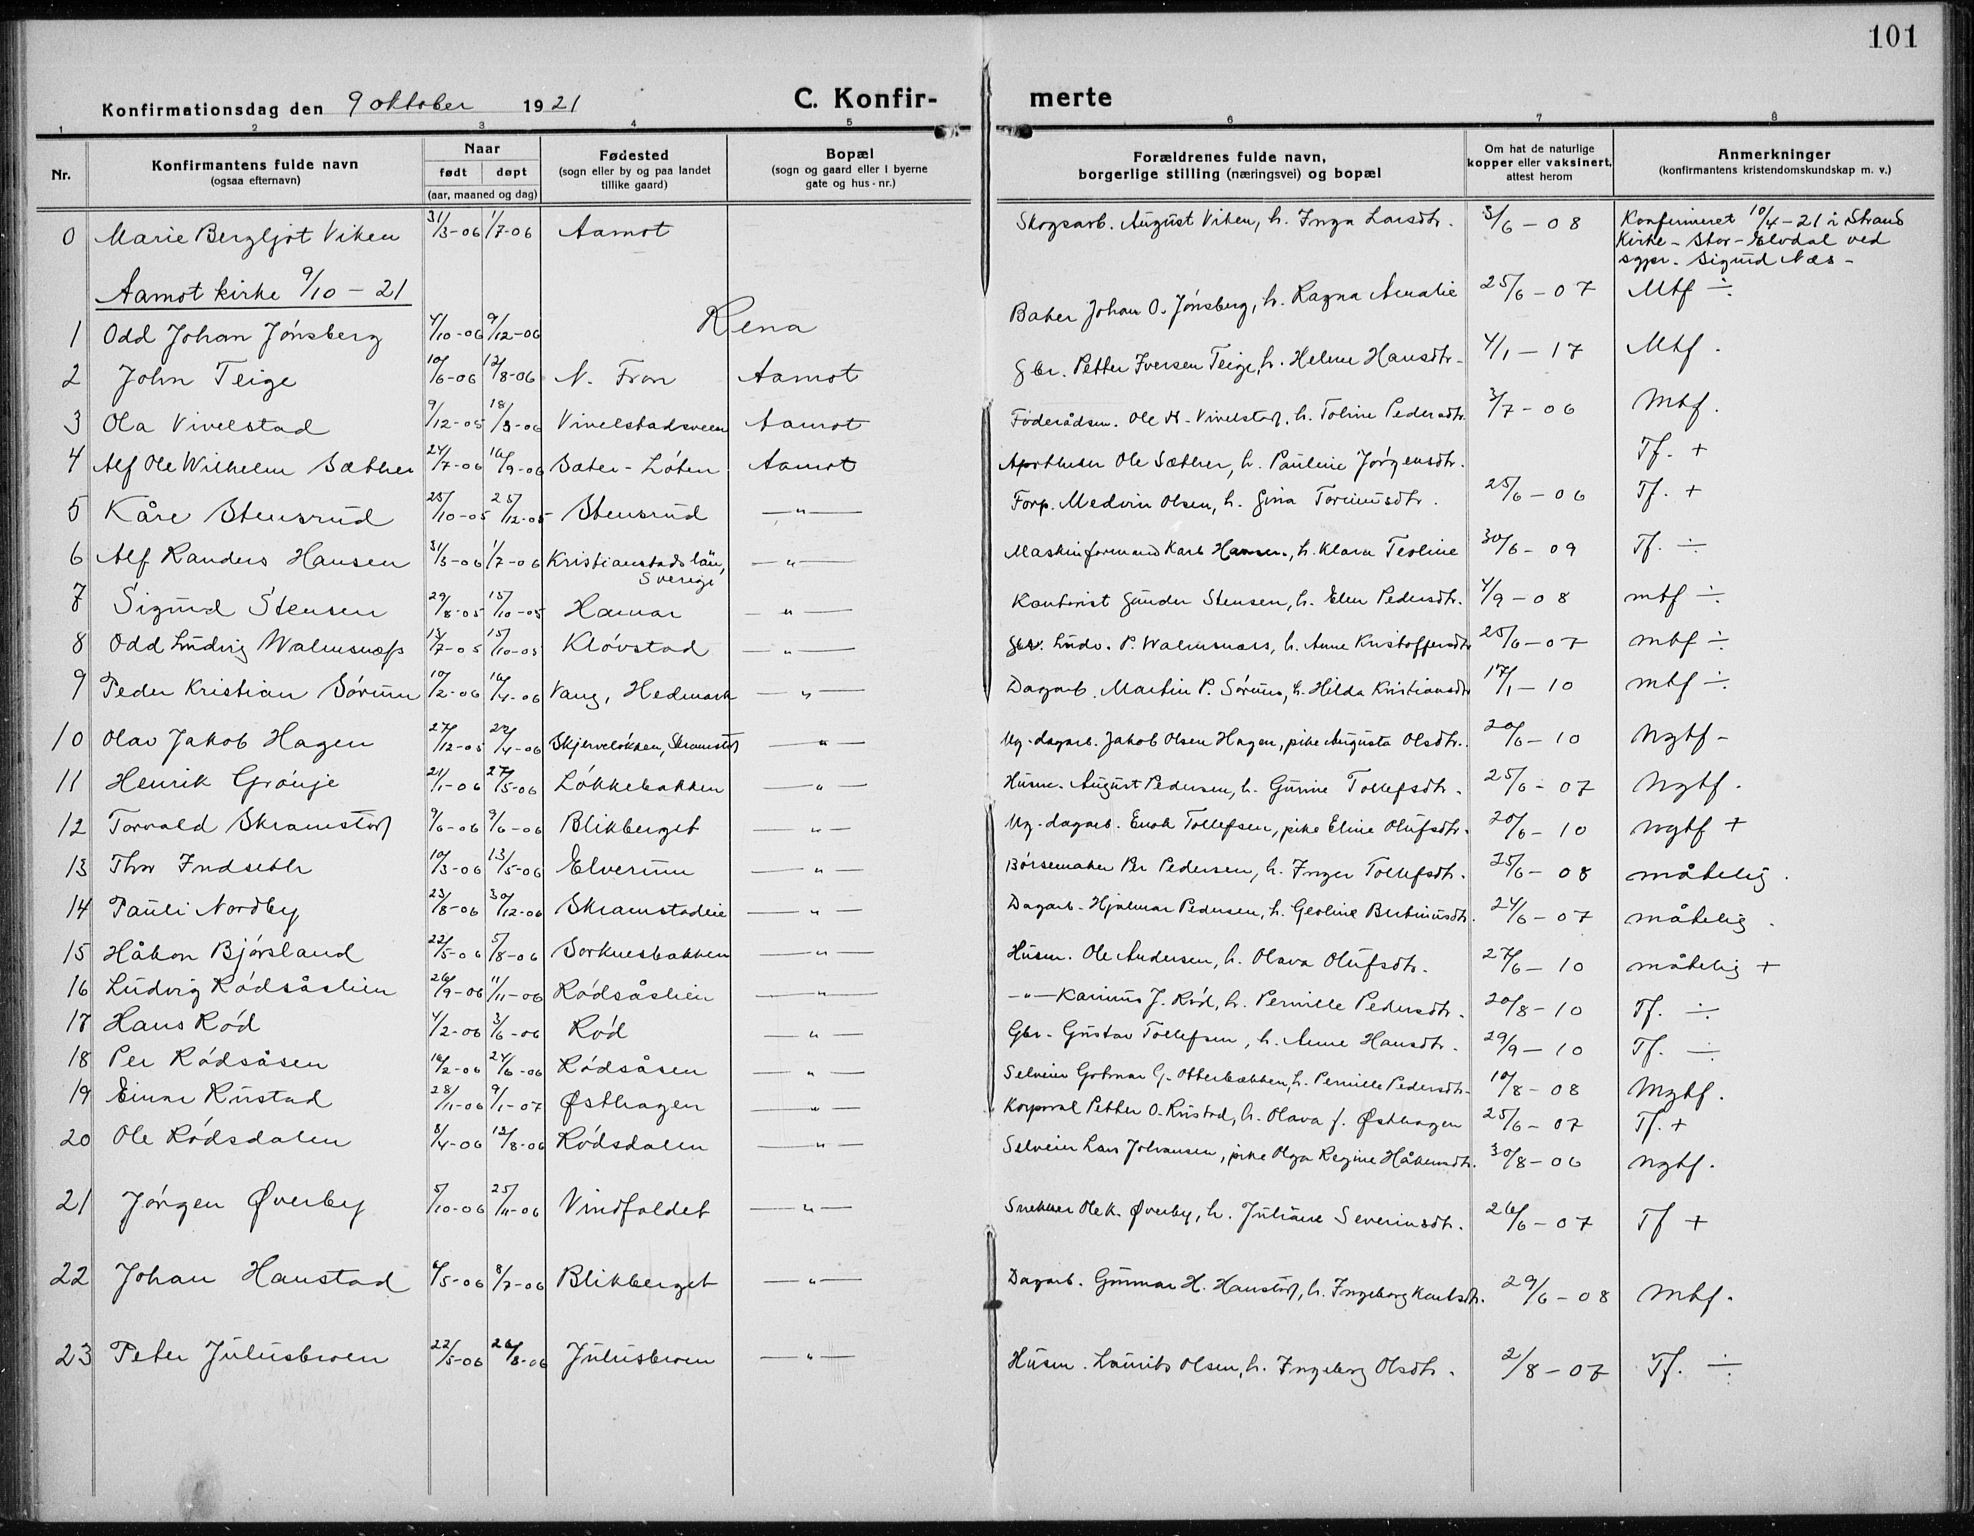 101
Konfirmationsdag den 9 oktober 1921 C. Konfir- merte
1 2 3 4 5 6 7 8
Nr. Konfirmantens fulde navn (ogsaa efternavn) Naar født døpt (aar, maaned og dag) Fødested (sogn eller by og paa landet tillike gaard) Bopæl (sogn og gaard eller i byerne gate og hus-nr.) Forældrenes fulde navn, borgerlige stilling (næringsvei) og bopæl Om hat de naturlige kopper eller vaksinert, attest herom Anmerkninger (konfirmantens kristendomskundskap m. v.)
0 Marie Bergljot Viken 31/3-06 1/7-06 Aamot Skogsarb. August Viken, h. Inga Larsdtr. 3/6-08 Konfirmeret 10/4-21 i Strand
Kirke - Stor-Elvdal ved
sgpr. Sigurd Næs -
Aamot kirke 9/10-21
1 Odd Johan Jónsberg 4/10-06 9/12-06 Rena Baker Johan O. Jónsberg, h. Ragna Amalie 25/6-07 Mtf ÷
2 John Teige 10/6-06 12/8-06 N. Fron Aamot Gbr. Petter Iversen Teige, h. Helene Hansdtr- 4/1-17 Mtf.
3 Ola Vivelstad 9/12-05 18/3-06 Vivelstadsveen Aamot Føderådsm. Ole H. Vivelstad, h. Toline Pedersdtr. 3/7-06 Mtf.
4 Alf Ole Wilhelm Sæther 24/7-06 16/9-06 Sæter-Løten Aamot Apotheker Ole Sæther, h. Pauline Jørgensdtr. Tf. +
5 Kåre Stensrud 25/10-05 25/12-05 Stensrud —"— Forp. Medvin Olsen, h. Gina Torinusdtr. 25/6-06 Tf. +
6 Alf Randers Hansen 31/3-06 1/7-06 Kristianstads län, Sverige —"— Maskinformand Karl Hansen, h. Klara Teoline 30/6-09 Tf. ÷
7 Sigurd Stensen 29/8-05 15/10-05 Hamar —"— Kontorist Gunder Stensen, h. Elen Pedersdtr. 4/9-08 mtf ÷
8 Odd Ludvig Walmsnæss 13/7-05 15/10-05 Kløvstad —"— Gbr. Ludv. P. Walmsnæss, h. Anne Kristoffersdtr 25/6-07 mtf ÷
9 Peder Kristian Sørum 10/2-06 16/4-06 Vang, Hedmark —"— Dagarb. Martin P. Sørum, h. Hilda Kristiansdtr 17/1-10 mtf ÷
10 Olav Jakob Hagen 27/12-05 22/4-06 Skjerveløkken, Skramstad —"— Ug.-dagarb. Jakob Olsen Hagen, pike Augusta Olsdtr. 20/6-10 Ngtf-
11 Henrik Grønje 21/1-06 27/5-06 Løkkebakken —"— Husm. August Pedersen, h. Gurine Tollefsdtr. 25/6-07 Ngtf.
12 Torvald Skramstad 9/6-06 9/6-06 Blikberget —"— Ug-dagarb. Enok Tollefsen, pike Eline Olufsdtr. 20/6-10 Ngtf +
13 Thor Indseth 10/3-06 13/5-06 Elverum —"— Børsemaker Per Pedersen, h. Inger Tollefsdtr. 25/6-08 måtelig.
14 Pauli Nordby 23/8-06 30/12-06 Skramstadeie —"— Dagarb- Hjalmar Pedersen, h. Geoline Bertinusdtr. 24/6-07 måtelig.
15 Håkon Bjørsland 22/5-06 5/8-06 Sorknesbakken —"— Husm. Ole Andersen, h. Olava Olufsdtr. 27/6-10 måtelig +
16 Ludvig Rødsåslien 26/9-06 11/11-06 Rødsåslien —"— -"- Karinus J. Rød, h. Pernille Pedersdtr. 20/8-10 Tf. ÷
17 Hans Rød 4/2-06 3/6-06 Rød —"— Gbr. Gustav Tollefsen, h. Anne Hansdtr. 29/9-10 Tf. ÷
18 Per Rødsåsen 16/2-06 24/6-06 Rødsåsen —"— Selveier Gotmar G. Otterbækken, h. Pernille Pedersdtr. 10/8-08 Mgtf.
19 Einar Rustad 28/11-06 9/1-07 Østhagen —"— Korporal Petter O. Rustad, h. Olava f. Østhagen 25/6-07 Tf. +
20 Ole Rødsdalen 8/4-06 12/8-06 Rødsdalen —"— Selveier Lars Johansen, pike Olga Regine Håkensdtr. 30/8-06 Ngtf.
21 Jørgen Øverby 5/10-06 25/11-06 Vindfaldet —"— Snekker Ole K. Øverby, h. Juliane Severinsdtr. 26/6-07 Tf +
22 Johan Hanstad 6/5-06 8/7-06 Blikberget —"— Dagarb. Gunnar H. Hanstad, h. Ingeborg Karlsdtr. 29/6-08 Mtf.
23 Peter Juliusbroen 22/5-06 26/8-06 Juliusbroen —"— Husm. Laurits Olsen, h. Ingeborg Olsdtr. 2/8-07 Tf. ÷